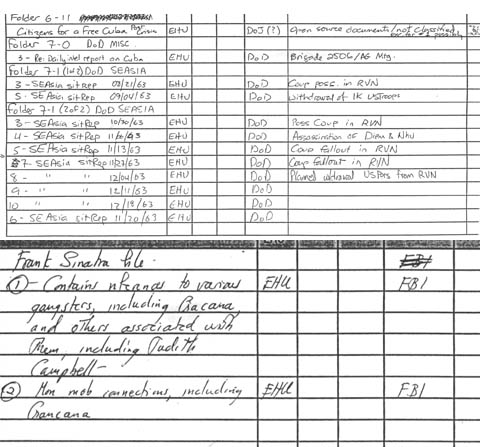 Folder 6-11
Citizens for a Free Cuba Post Crisis EHU DoJ (?) Open source documents/not classified
Folder 7-0 DoD MISC.
3 - Re: Daily intel report on Cuba EHU DoD Brigade 2506/AG Mtg.
Folder 7-1 (1of2) DoD SEASIA
3 - SEAsia sitrep 08/21/63 EHU DoD Coup poss. in RVN
5 - SEAsia sitRep 09/04/63 EHU DoD Withdrawal of 1K US troops
Folder 7-1 (2of2) DoD SEASIA
3 - SEAsia sitRep 10/30/63 EHU DoD Poss Coup in RVN
4 - SEAsia sitRep 11/6/63 EHU DoD Assassination of Diem & Nhu
5 - SEAsia sitRep 11/13/63 EHU DoD Coup fallout in RVN
#7 - SEAsia sitRep 11/27/63 EHU DoD Coup fallout in RVN
8 - " " 12/04/63 EHU DoD Planned withdrawal US Pers from RVN
9 - " " 12/11/63 EHU DoD
10 " " 12/18/63 EHU DoD
6 - SEAsia sitRep 11/20/63 EHU DoD
Frank Sinatra file - FBI
① - Contains references to various EHU FBI
gangsters, including Giacana,
and others associated with
them, including Judith
Campbell -
② Mon mob connections, including EHU FBI
Giancana